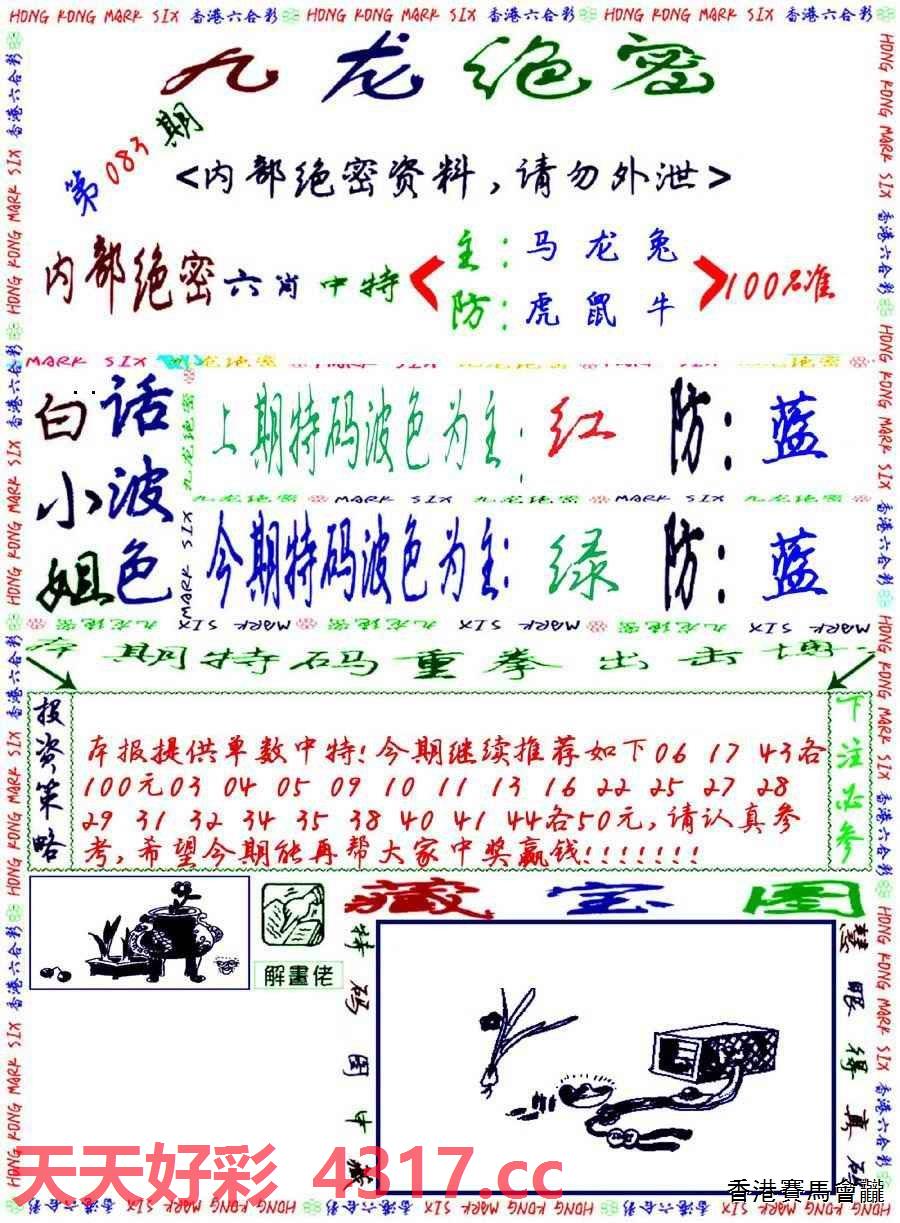 HONG KONG MARK SIX 香港六合彩 HONG KONG MARK SIX 香港六合彩 HONG KONG MARK SIX 香港六合彩 HONG KONG MARK SIX 香港六合彩
九龙绝密
第083期
<内部绝密资料,请勿外泄>
内部绝密六肖中特
主:马龙兔
防:虎鼠牛
100%准
MARK SIX 九龙绝密
白话小姐波色
上期特码波色为主:红 防:蓝
九龙绝密 MARK SIX 九龙绝密 MARK SIX 九龙绝密
今期特码波色为主:绿 防:蓝
MARK SIX 九龙绝密 MARK SIX 九龙绝密 MARK SIX 九龙绝密
本期特码重拳出击
投资策略
本报提供单数中特!今期继续推荐如下06 17 43各
100元03 04 05 09 10 11 13 16 22 25 27 28
29 31 32 34 35 38 40 41 44各50元,请认真参
考,希望今期能再帮大家中奖赢钱!!!!!!!
下注必参
解畫佬
藏宝图
特码图中藏
慧眼得真码
天天好彩 4317.cc
香港賽馬會